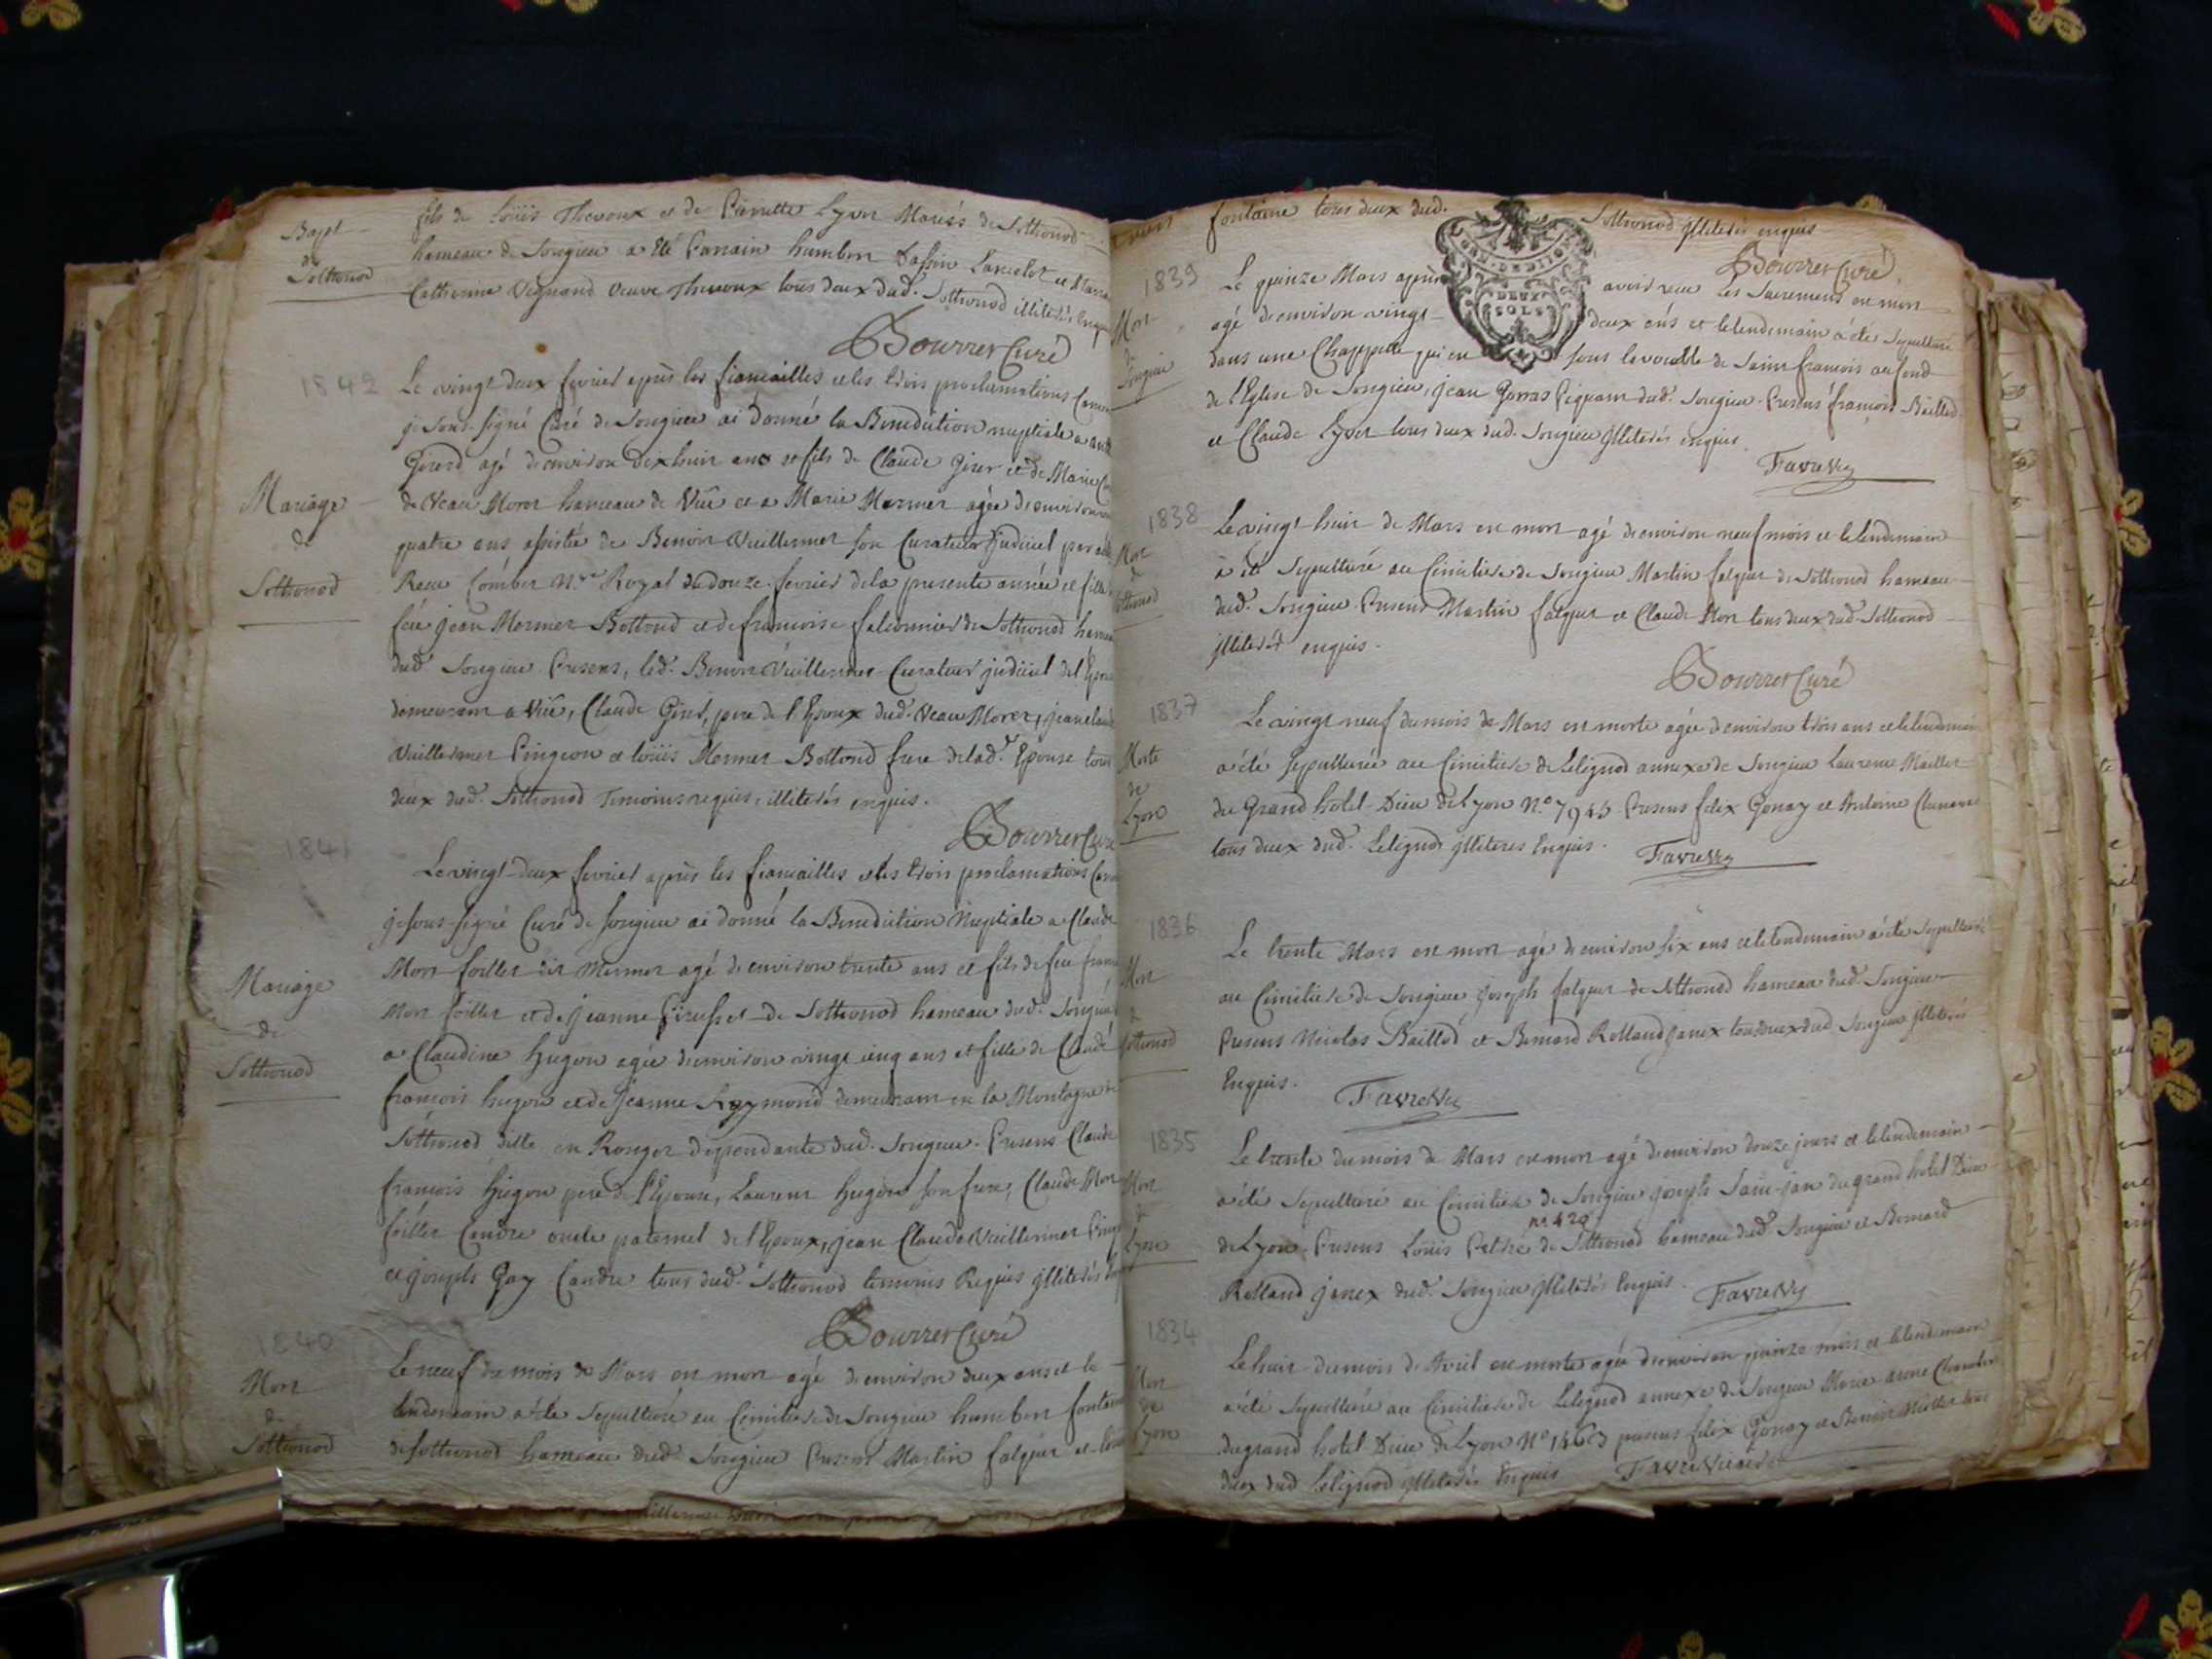 Bapt
de
Sothonod
fils de Loüis Thevoux et de Pierrette Lyvet Mariés de Sothonod
hameau de Songieu a été Parrain humbert Lancelot et Marra
Catherine Vegnand Veuve Thevoux tous deux dud. Sothonod illiterés Enquis
Bourret Curé
1842
Mariage
de
Sothonod
Le vingt deux fevrier après les fiancailles et les trois proclamations Canon
je sous-signé Curé de Songieu ai donné la Benediction nuptiale a
Girerd agé denviron dix huit ans et fils de Claude Girer et de Marie
de Veau Moret hameau de Viû et a Marie Mermet agée denviron
quatre ans assistée de Benoit Vuillermet son Curateur Judiciel par acte
Recu Combet N.re Royal du douze fevrier dela presente année et fille
feu jean Mermet Bottond et de francoise falconnier de Sothonod hameau
dud. Songieu. Presens, led. Benoit Vuillermet Curateur judiciel del Epouse
demeurant a Viû, Claude Giret, pere de l'Epoux dud. Veau Moret, jean claude
Vuillermet Pingeon et Loüis Mermet Bottond frere delad. Epouse tous
deux dud. Sothonod Temoins requis, illiterés enquis.
Bourret Curé
1841
Mariage
de
Sothonod
Le vingt-deux fevrier après les fiancailles et les trois proclamations Canon
je sous-signé Curé de Songieu ai donné la Benediction Nuptiale a Claude
Mort foiller dit Mermet agé denviron trente ans et fils de feu franc
Mort foiller et de jeanne de Sothonod hameau dud. Songieu
a Claudine hugon agée denviron vingt cinq ans et fille de Claude
francois hugon et de Jeanne Reymond demeurant en la Montagne de
Sothonod ditte en Ronger dependante dud. Songieu. Presens Claude
francois hugon pere de l'Epouse, Laurent hugon son frere, Claude Mort
foiller Candre oncle paternel de l'Epoux, jean Claude Vuillermet Ping
et joseph Gay Candre tous dud. Sothonod temoins Requis illiterés
Bourret Curé
1840
Mort
de
Sothonod
Le neuf du mois de Mars est mort agé denviron deux ans et le
lendemain a été sepulturé au Cimitiere de Songieu humbert fontaine
de sothonod hameau dud. Songieu Presens Martin falquet et
fontaine tous deux dud. Sothonod illiterés enquis
Bourret Curé
GEN. DE DIJON
DEUX
SOLS
1839
Mort
de
Songieu
Le quinze Mars après avoir recu les Sacremens est mort
agé denviron vingt-deux ans et lelendemain a été sepulturé
dans une Chappelle qui est sous levocable de Saint francois aufond
de l'Eglise de Songieu, jean Gerras Piquam dud. Songieu. Presens francois Baillod
et Claude Lyvet tous deux dud. Songieu illiterés enquis
Favre Vic
1838
Mort
de
Sothonod
Le vingt-huit de Mars est mort agé denviron neuf mois et lelendemain
a été sepulturé au Cimitiere de Songieu Martin falquet de Sothonod hameau
dud. Songieu. Presens Martin falquet et Claude Mort tous deux dud. Sothonod
illiterés enquis.
Bourret Curé
1837
Morte
de
Lyon
Le vingt neuf du mois de Mars est morte agée denviron trois ans et lelendemain
a été sepulturée au Cimitiere de Lelignod annexe de Songieu Laurence Maillet
du Grand hotel-Dieu de Lyon N.o 7945 Presens felix Gonay et Antoine
tous deux dud. Lelignod illiteres Enquis.
Favre Vic
1836
Mort
de
Sothonod
Le trente Mars est mort agé denviron six ans et lelendemain a été sepulturé
au Cimitiere de Songieu joseph falquet de Sothonod hameau dud. Songieu
Presens Nicolas Baillod et Bernard Rolland janex tous deux dud. Songieu illiterés
Enquis.
Favre Vic
1835
Mort
de
Lyon
Le trente du mois de Mars est mort agé denviron douze jours et lelendemain
a été sepulturé au Cimitiere de Songieu joseph Saint-jan du grand hotel Dieu
n.o 420
de Lyon. Presens Loüis de Sothonod hameau dud. Songieu et Bernard
Rolland janex dud. Songieu illiterés Enquis.
Favre Vic
1834
Mort
de
Lyon
Le huit du mois de Avril est morte agée denviron quinze mois et lelendemain
a été sepulturée au Cimitiere de Lelignod annexe de Songieu Marie anne
du grand hotel Dieu de Lyon N.o presens felix Gonay et Benoit Maillet tous
deux dud Lelignod illiterés Enquis
Favre Vicaire